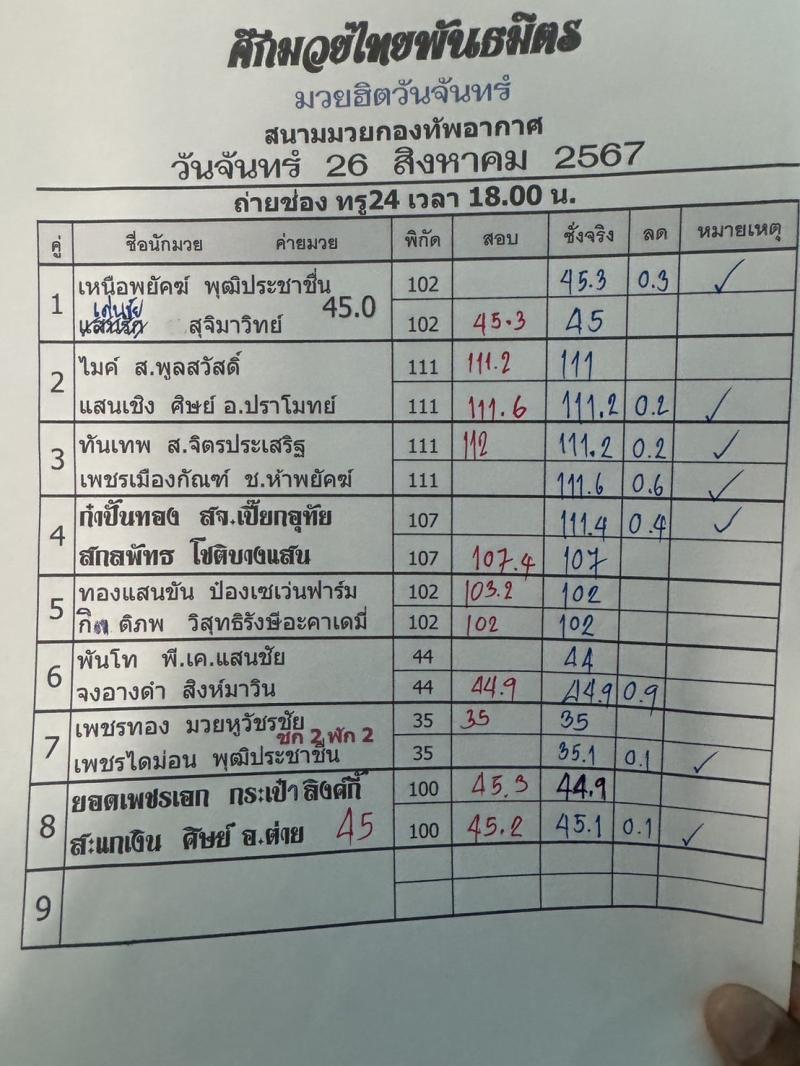 ศึกมวยไทยพันธมิตร
มวยฮิตวันจันทร์
สนามมวยกองทัพอากาศ
วันจันทร์ 26 สิงหาคม 2567
ถ่ายช่อง ทรู24 เวลา 18.00 น.
คู่ ชื่อนักมวย ค่ายมวย พิกัด สอบ ชั่งจริง ลด หมายเหตุ
1 เหนือพยัคฆ์ พุฒิประชาชื่น 102 45.3 0.3 ✓
เด่นชัย
แสนรัก สุจิมาวิทย์ 45.0 102 45.3 45
2 ไมค์ ส.พูลสวัสดิ์ 111 111.2 111
แสนเชิง ศิษย์ อ.ปราโมทย์ 111 111.6 111.2 0.2 ✓
3 ทันเทพ ส.จิตรประเสริฐ 111 112 111.2 0.2 ✓
เพชรเมืองกัณฑ์ ช.ห้าพยัคฆ์ 111 111.6 0.6 ✓
4 ก๋าปั้นทอง สจ.เปี๊ยกอุทัย 107 111.4 0.4 ✓
สกลพัทธ โชติบางแสน 107 107.4 107
5 ทองแสนขัน ป๋องเซเว่นฟาร์ม 102 103.2 102
กิตติภพ วิสุทธิรังษีอะคาเดมี่ 102 102 102
6 พันโท พี.เค.แสนชัย 44 44
จงอางดำ สิงห์มาวิน 44 44.9 44.9 0.9
7 เพชรทอง มวยหูวัชรชัย 35 35 35
ชก 2 พัก 2
เพชรไดม่อน พุฒิประชาชื่น 35 35.1 0.1 ✓
8 ยอดเพชรเอก กระเป๋าลิงค์กี้ 100 45.3 44.9
สะแกเงิน ศิษย์ อ.ต่าย 45 100 45.2 45.1 0.1 ✓
9